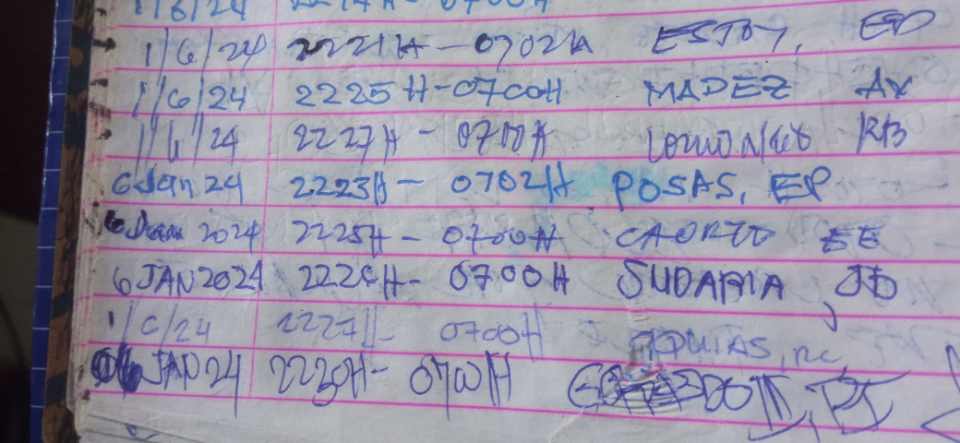 1/6/24 2217H - 0700H
1/6/24 2221H - 0702H ESTOY, ED
1/6/24 2225H - 0700H MADEZ AX
1/6/24 2227H - 0700H RB
6 Jan 24 2223H - 0702H POSAS, EP
6 Jan 2024 2225H - 0700H EE
6 JAN 2024 2226H - 0700H SUDARIA, JD
1/6/24 2227H - 0700H
06 JAN 24 2230H - 0700H